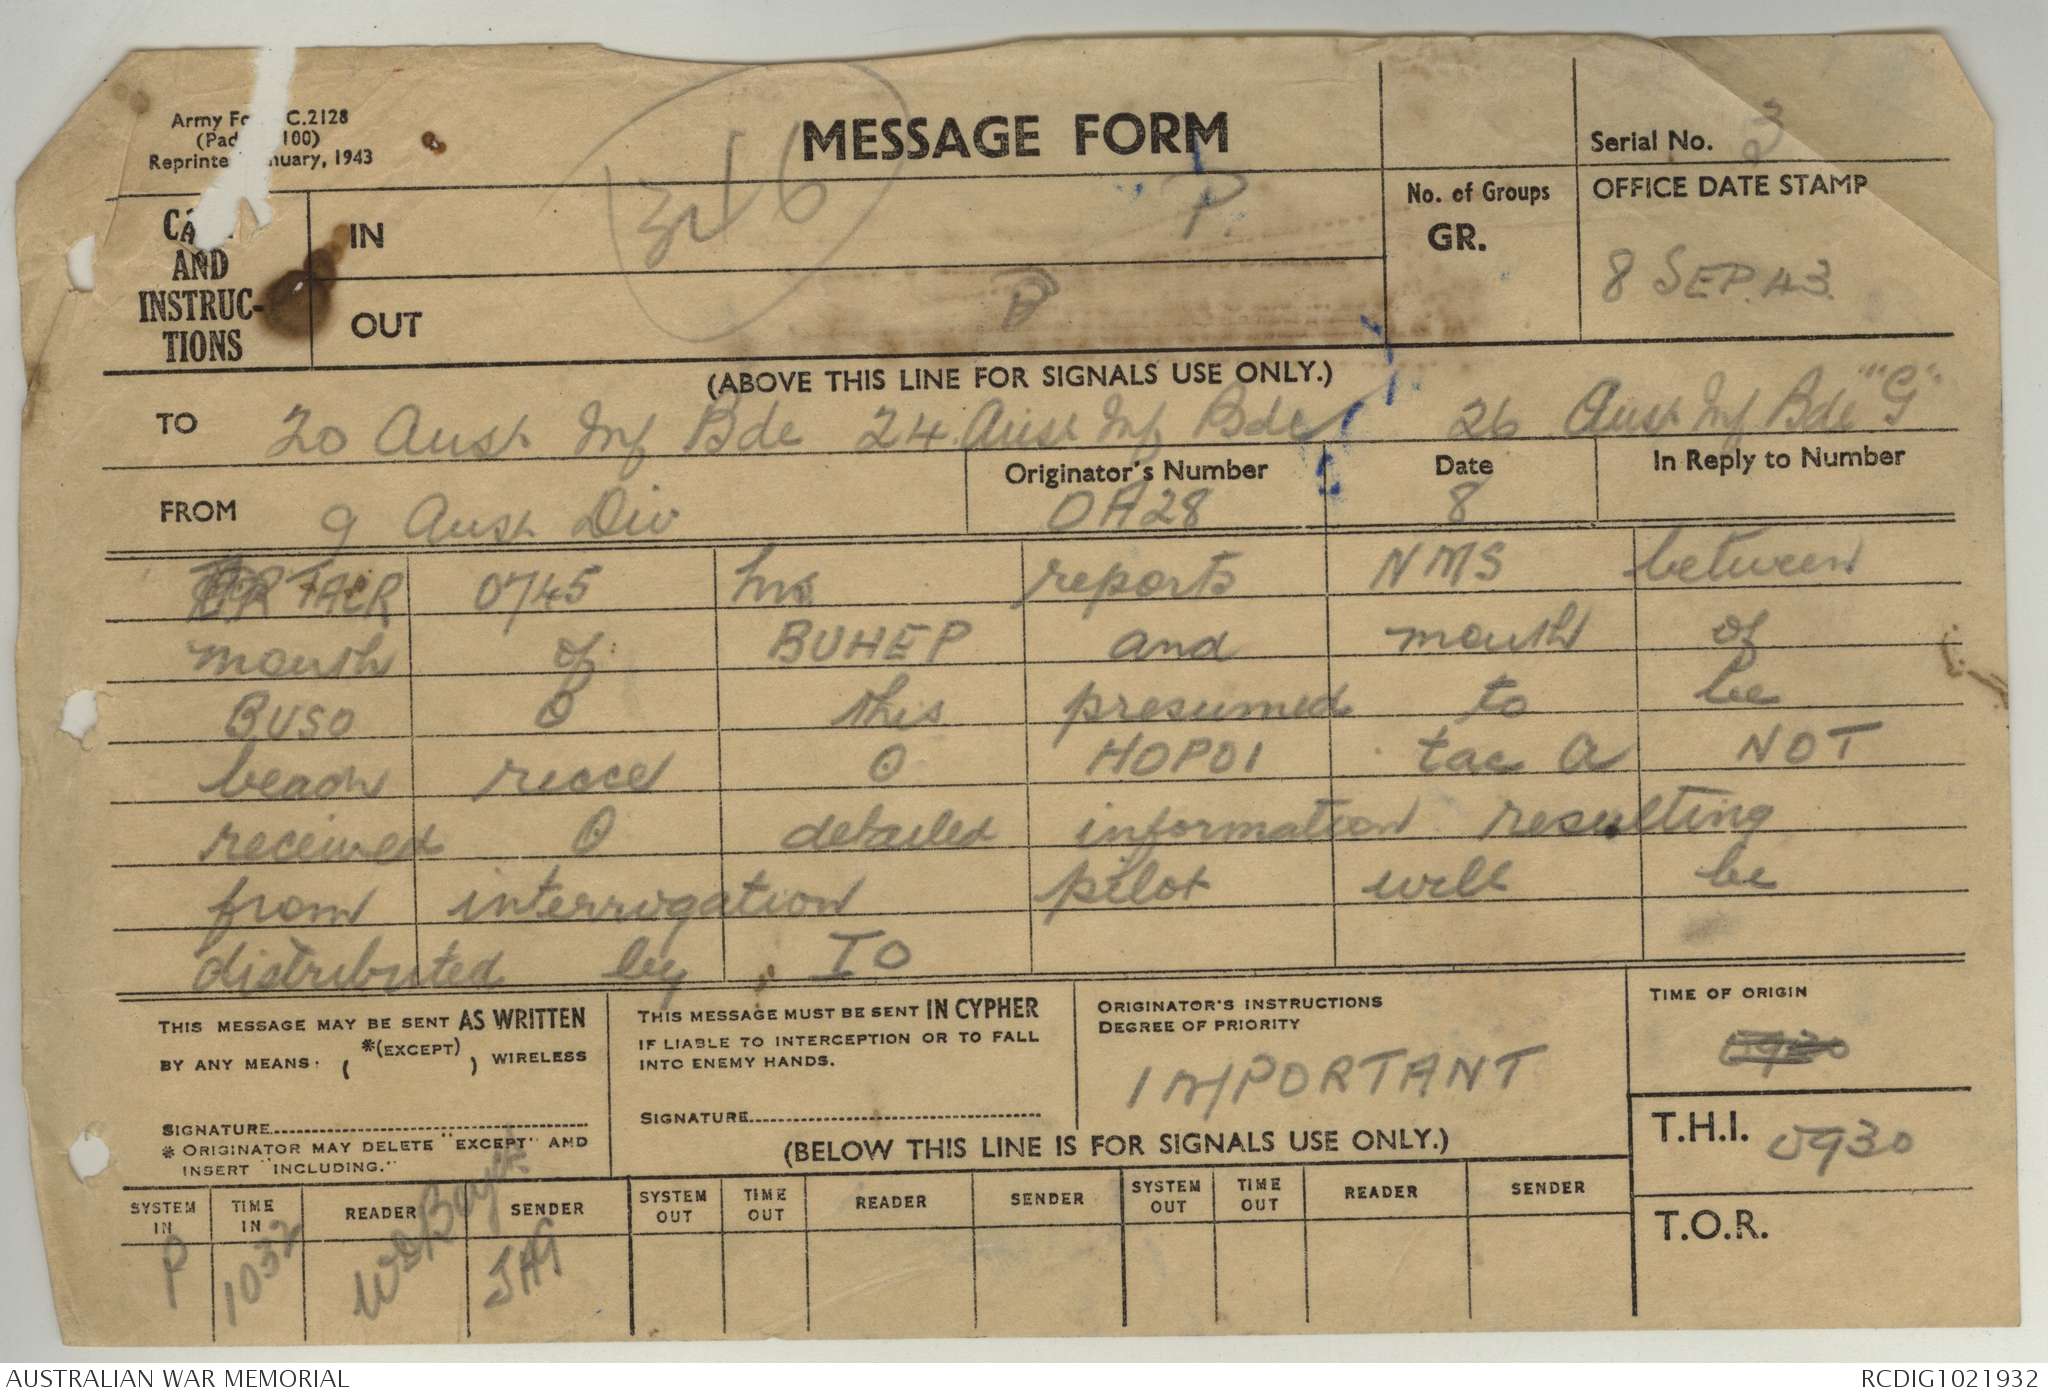 Army Fo C.2128
(Pad 100)
Reprinte nuary, 1943
MESSAGE FORM
Serial No. 3
316
CA
AND
INSTRUC-
TIONS
IN
P.
OUT
B
No. of Groups
GR.
OFFICE DATE STAMP
8 SEP. 43.
(ABOVE THIS LINE FOR SIGNALS USE ONLY.)
TO 20 Aust Inf Bde 24 Aust Inf Bde 26 Aust Inf Bde "G"
FROM 9 Aust Div
Originator's Number OA28
Date 8
In Reply to Number
TACR 0745 hrs reports NMS between
mouth of BUHEP and mouth of
BUSO O this presumed to be
beach recce O HOPOI tac R NOT
received O detailed information resulting
from interrogation pilot will be
distributed by IO
THIS MESSAGE MAY BE SENT AS WRITTEN
BY ANY MEANS. ( *(EXCEPT) ) WIRELESS
SIGNATURE
* ORIGINATOR MAY DELETE "EXCEPT" AND
INSERT "INCLUDING."
THIS MESSAGE MUST BE SENT IN CYPHER
IF LIABLE TO INTERCEPTION OR TO FALL
INTO ENEMY HANDS.
SIGNATURE
ORIGINATOR'S INSTRUCTIONS
DEGREE OF PRIORITY
IMPORTANT
TIME OF ORIGIN
0930
(BELOW THIS LINE IS FOR SIGNALS USE ONLY.)
T.H.I. 0930
T.O.R.
SYSTEM IN TIME IN READER SENDER SYSTEM OUT TIME OUT READER SENDER SYSTEM OUT TIME OUT READER SENDER
P 1032 JAG
AUSTRALIAN WAR MEMORIAL
RCDIG1021932